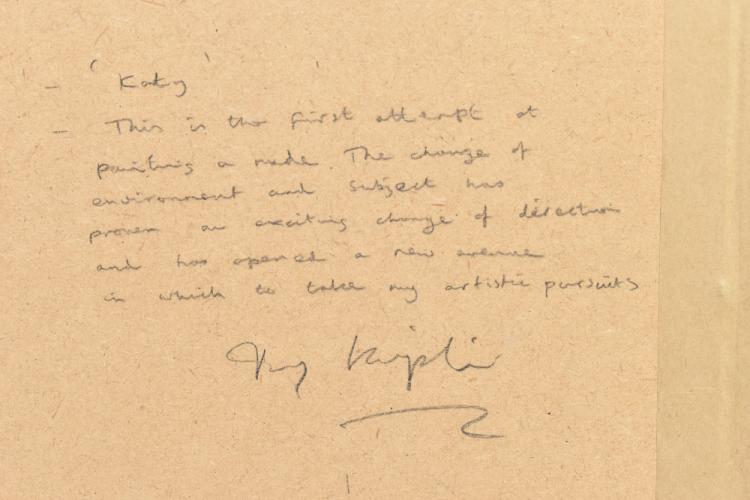 - 'Katy'
- This is the first attempt at
painting a nude. The change of
environment and subject has
proven an exciting change of direction
and has opened a new avenue
in which to take my artistic pursuits